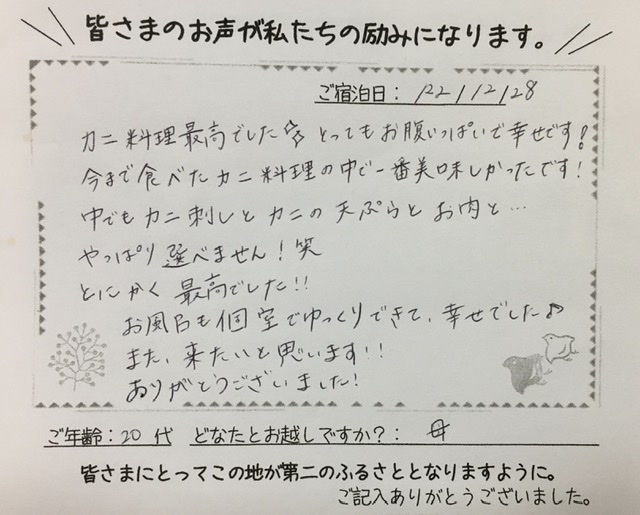 皆さまのお声が私たちの励みになります。
ご宿泊日: '22/12/28
カニ料理最高でした とってもお腹いっぱいで幸せです!
今まで食べたカニ料理の中で一番美味しかったです!
中でもカニ刺しとカニの天ぷらとお肉と…
やっぱり選べません!笑
とにかく最高でした!!
お風呂も個室でゆっくりできて、幸せでした♪
また、来たいと思います!!
ありがとうございました!
ご年齢:20代 どなたとお越しですか?: 母
皆さまにとってこの地が第二のふるさととなりますように。
ご記入ありがとうございました。